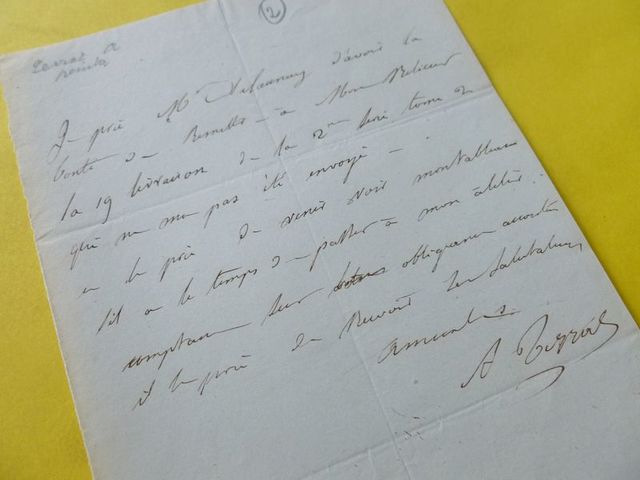 2
Je prie Mr Delaunay d'avoir la
bonté de Remettre à Mon Relieur
la 19 livraison de la 2me Série tome 2
qui ne m'a pas été envoyé.
je le prie de venir voir mon tableau
s'il a le temps de passer à mon atelier.
comptant sur son obligeance accoutumée
il le prie de Recevoir ses Salutations
amicales.
A